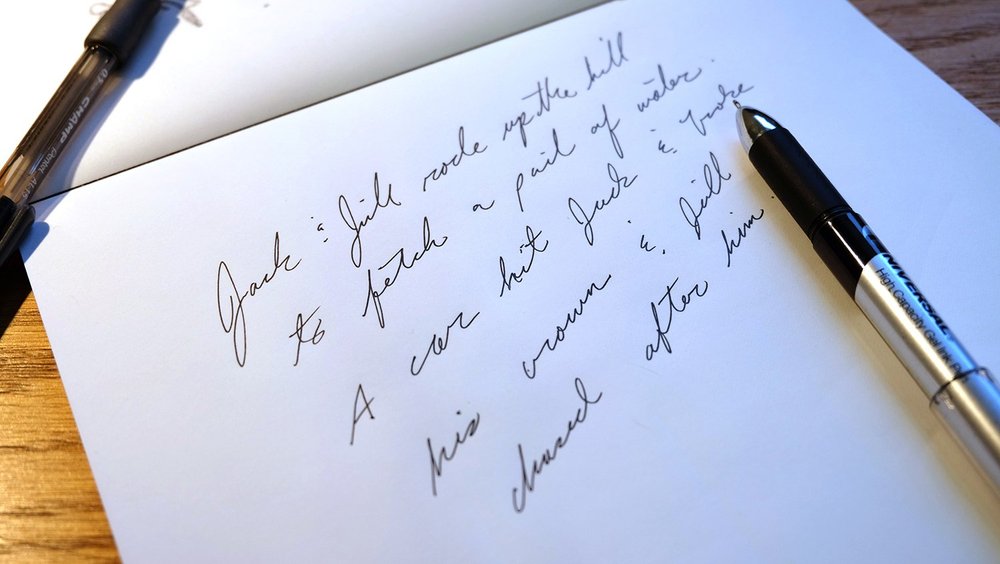 Jack & Jill rode up the hill
to fetch a pail of water.
A car hit Jack & broke
his crown & Jill
chased after him.
UNIVERSAL
High Capacity Gel Ink
0.7mm CHAMP Pentel